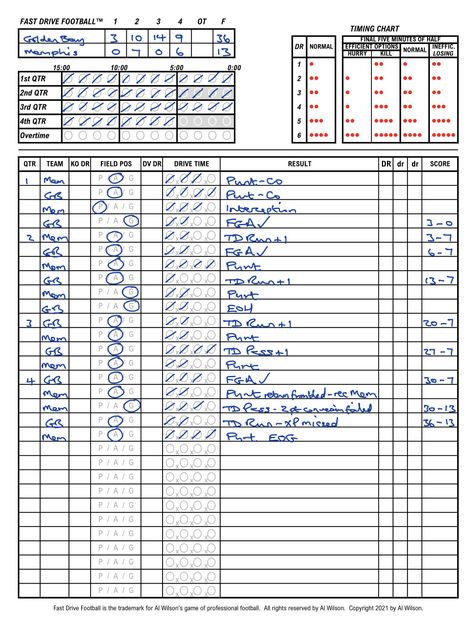 FAST DRIVE FOOTBALL™ 1 2 3 4 OT F
Golden Bay 3 10 14 9 36
Memphis 0 7 0 6 13
15:00 10:00 5:00 0:00
1st QTR
2nd QTR
3rd QTR
4th QTR
Overtime
TIMING CHART
FINAL FIVE MINUTES OF HALF
DR NORMAL EFFICIENT OPTIONS NORMAL INEFFIC.
HURRY KILL LOSING
1
2
3
4
5
6
QTR TEAM KO DR FIELD POS DV DR DRIVE TIME RESULT DR dr dr SCORE
1 Mem P A G Punt-Co
GB P A G Punt-Co
Mem P / A / G Interception
GB P / A / G FGA✓ 3-0
2 Mem P A G TD Run+1 3-7
GB P A G FGA✓ 6-7
Mem P A G Punt
GB P A G TD Run+1 13-7
Mem P / A / G Punt
GB P / A / G EOH
3 GB P A G TD Run+1 20-7
Mem P A G Punt
GB P A G TD Pass+1 27-7
Mem P A G Punt
4 GB P A G FGA✓ 30-7
Mem P A G Punt return fumbled-rec Mem
Mem P / A / G TD Pass - 2pt conversion failed 30-13
GB P A G TD Run-XP missed 36-13
Mem P A G Punt EOG
P / A / G
P / A / G
P / A / G
P / A / G
P / A / G
P / A / G
P / A / G
P / A / G
P / A / G
P / A / G
P / A / G
Fast Drive Football is the trademark for Al Wilson's game of professional football. All rights reserved by Al Wilson. Copyright 2021 by Al Wilson.